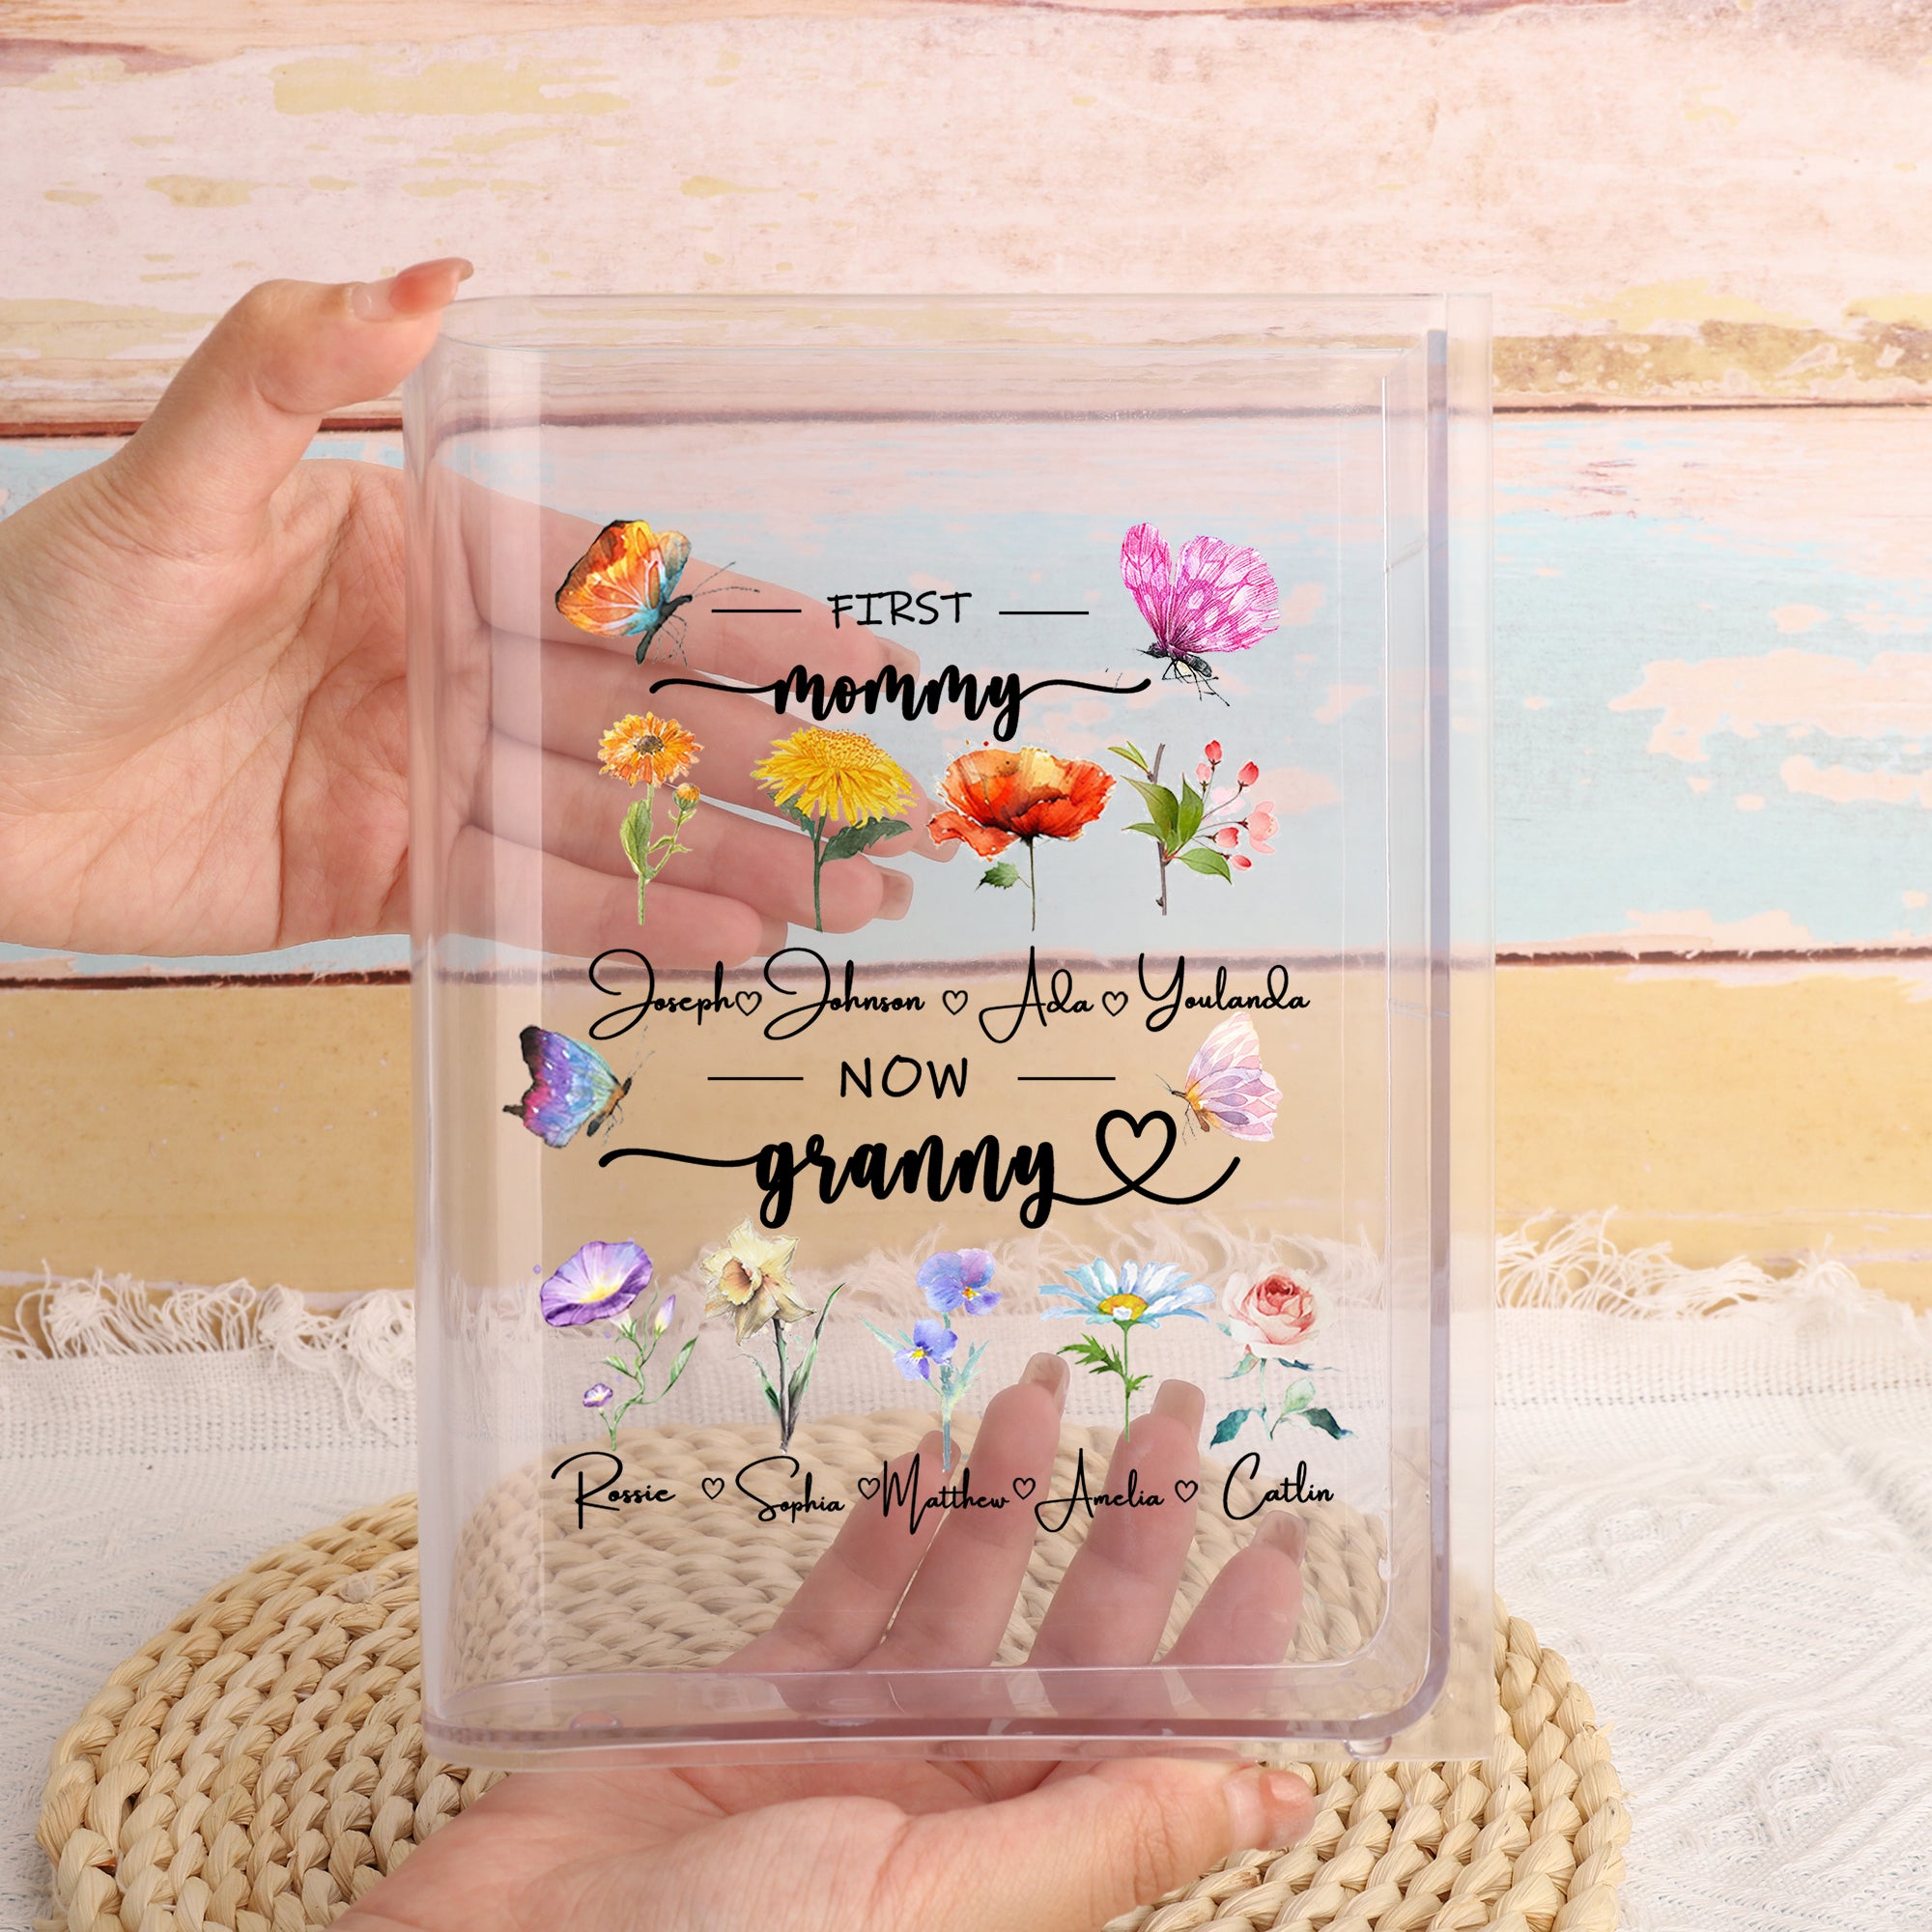 FIRST
mommy
Joseph♡Johnson ♡ Ada ♡ Youlanda
NOW
granny
Rossie ♡ Sophia ♡ Matthew ♡ Amelia ♡ Catlin